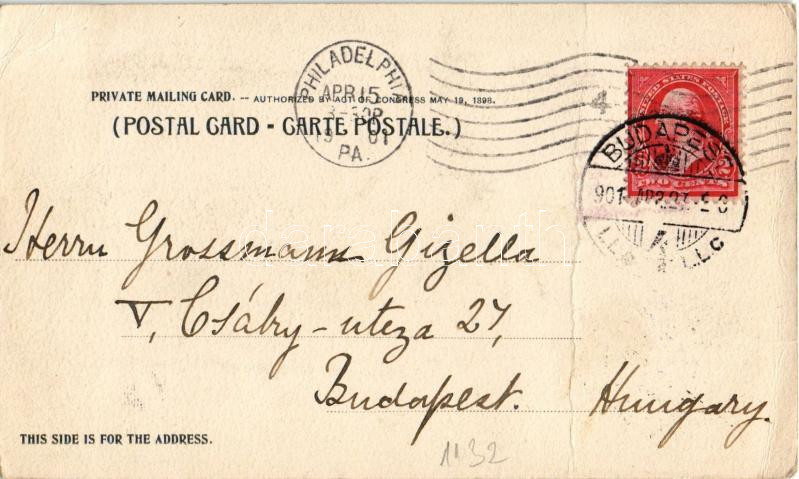 PHILADELPHIA
APR 15
19 01
PA.
4
PRIVATE MAILING CARD. — AUTHORIZED BY ACT OF CONGRESS MAY 19, 1898.
(POSTAL CARD - CARTE POSTALE.)
UNITED STATES POSTAGE
2
TWO CENTS
BUDAPEST
901
Herrn Grossmann Gizella
V, Csáky-utcza 27,
Budapest. Hungary.
THIS SIDE IS FOR THE ADDRESS.
1132